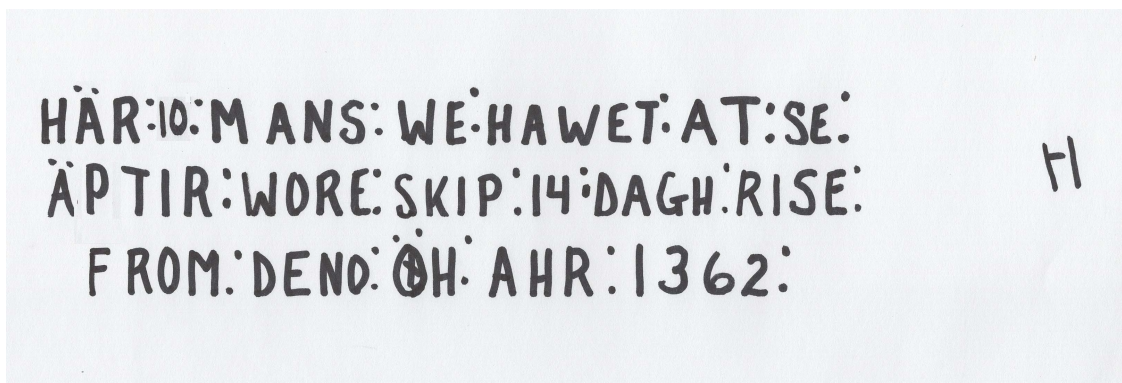 HÄR:10:MANS:WE:HAWET:AT:SE:
ÄPTIR:WORE:SKIP:14:DAGH:RISE:
FROM:DENO:ÖH:AHR:1362:
H